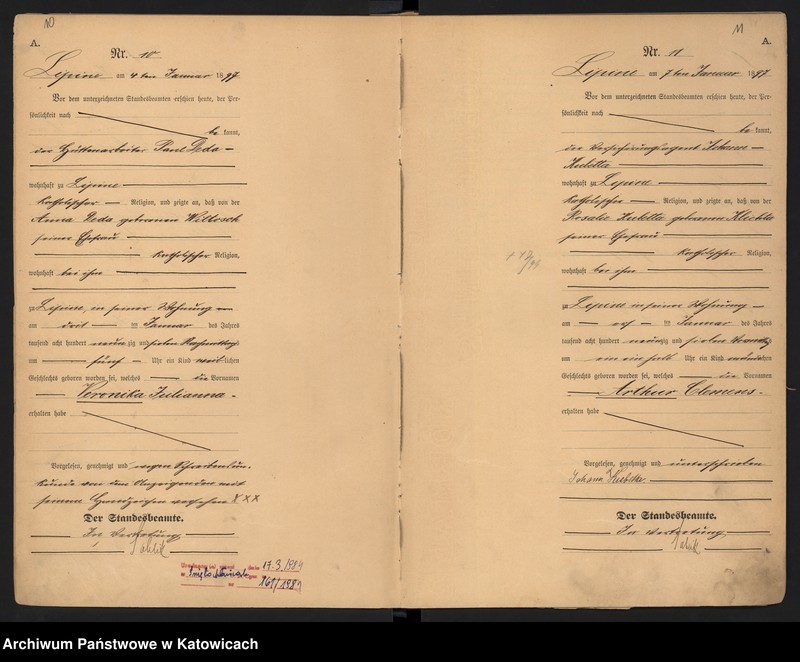 10
A.
Nr. 10
Lipine am 4ten Januar 1897
Vor dem unterzeichneten Standesbeamten erschien heute, der Per-
sönlichkeit nach
be kannt,
der Hüttenarbeiter Paul Deda
wohnhaft zu Lipine
katholischer Religion, und zeigte an, daß von der
Anna Deda geborenen
seiner Ehefrau
katholischer Religion,
wohnhaft bei ihm
zu Lipine, in seiner Wohnung
am drei ten Januar des Jahres
tausend acht hundert neunzig und sieben Nachmittags
um fünf Uhr ein Kind weiblichen
Geschlechts geboren worden sei, welches die Vornamen
Veronika Julianna
erhalten habe
Vorgelesen, genehmigt und wegen Schreibensun-
kunde von dem Anzeigenden mit
seinem Handzeichen versehen XXX
Der Standesbeamte.
In Vertretung
17.3.1984
161/1984
11
A.
Nr. 11
Lipine am 7ten Januar 1897
Vor dem unterzeichneten Standesbeamten erschien heute, der Per-
sönlichkeit nach
be kannt,
der Versicherungsagent Johann
wohnhaft zu Lipine
katholischer Religion, und zeigte an, daß von der
Rosalie geborenen
seiner Ehefrau
katholischer Religion,
wohnhaft bei ihm
zu Lipine in seiner Wohnung
am ten Januar des Jahres
tausend acht hundert neunzig und sieben
um ein ein halb Uhr ein Kind männlichen
Geschlechts geboren worden sei, welches die Vornamen
Arthur Clemens
erhalten habe
Vorgelesen, genehmigt und unterschrieben
Johann
Der Standesbeamte.
In Vertretung
Archiwum Państwowe w Katowicach